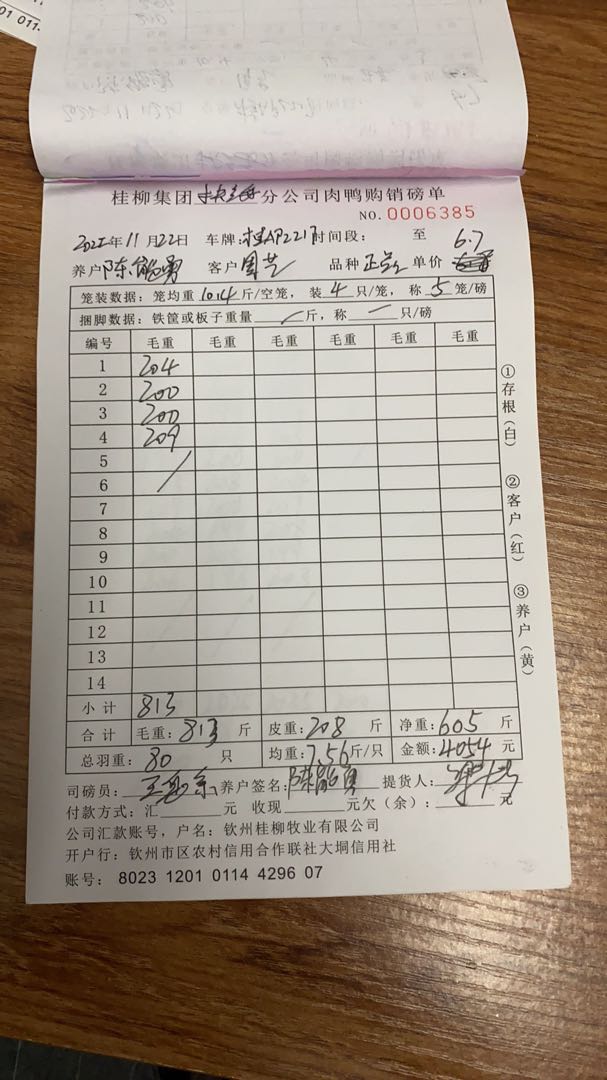 01 011
桂柳集团分公司肉鸭购销磅单
NO.0006385
2022年11月22日 车牌:桂AP2217时间段: 至 6.7
养户陈能勇 客户周艺 品种正品 单价
笼装数据:笼均重10.4斤/空笼,装4只/笼,称5笼/磅
捆脚数据:铁筐或板子重量/斤,称一只/磅
编号 毛重 毛重 毛重 毛重 毛重 毛重
1 204
2 200
3 200
4 209
5
6
7
8
9
10
11
12
13
14
小计 813
合计 毛重:813斤 皮重:208斤 净重:605斤
总羽重:80只 均重:7.56斤/只 金额:4054元
司磅员: 养户签名:陈能勇 提货人:
付款方式:汇 元 收现 元欠(余): 元
公司汇款账号,户名:钦州桂柳牧业有限公司
开户行:钦州市区农村信用合作联社大垌信用社
账号: 8023 1201 0114 4296 07
①存根(白)
②客户(红)
③养户(黄)